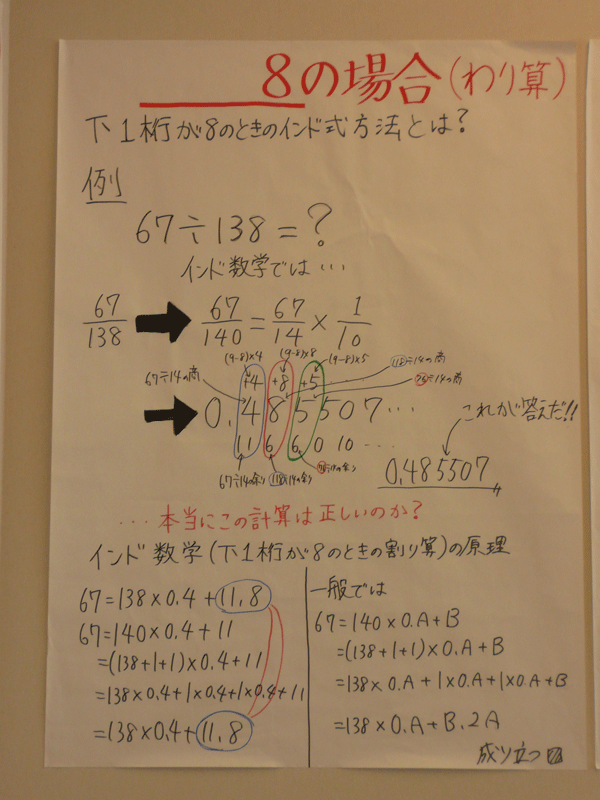 8の場合(わり算)
下1桁が8のときのインド式方法とは?
例
67÷138=?
インド数学では…
67/138 → 67/140 = 67/14 × 1/10
(9-8)×4 (9-8)×8 (9-8)×5
67÷14の商 118÷14の商
+4 +8 +5 76÷14の商
→ 0.485507…
11 6 6 0 10 …
67÷14の余り 118÷14の余り 76÷14の余り
これが答えだ!!
0.485507
…本当にこの計算は正しいのか?
インド数学(下1桁が8のときの割り算)の原理
67=138×0.4+11.8
67=140×0.4+11
=(138+1+1)×0.4+11
=138×0.4+1×0.4+1×0.4+11
=138×0.4+11.8
一般では
67=140×0.A+B
=(138+1+1)×0.A+B
=138×0.A+1×0.A+1×0.A+B
=138×0.A+B.2A
成り立つ